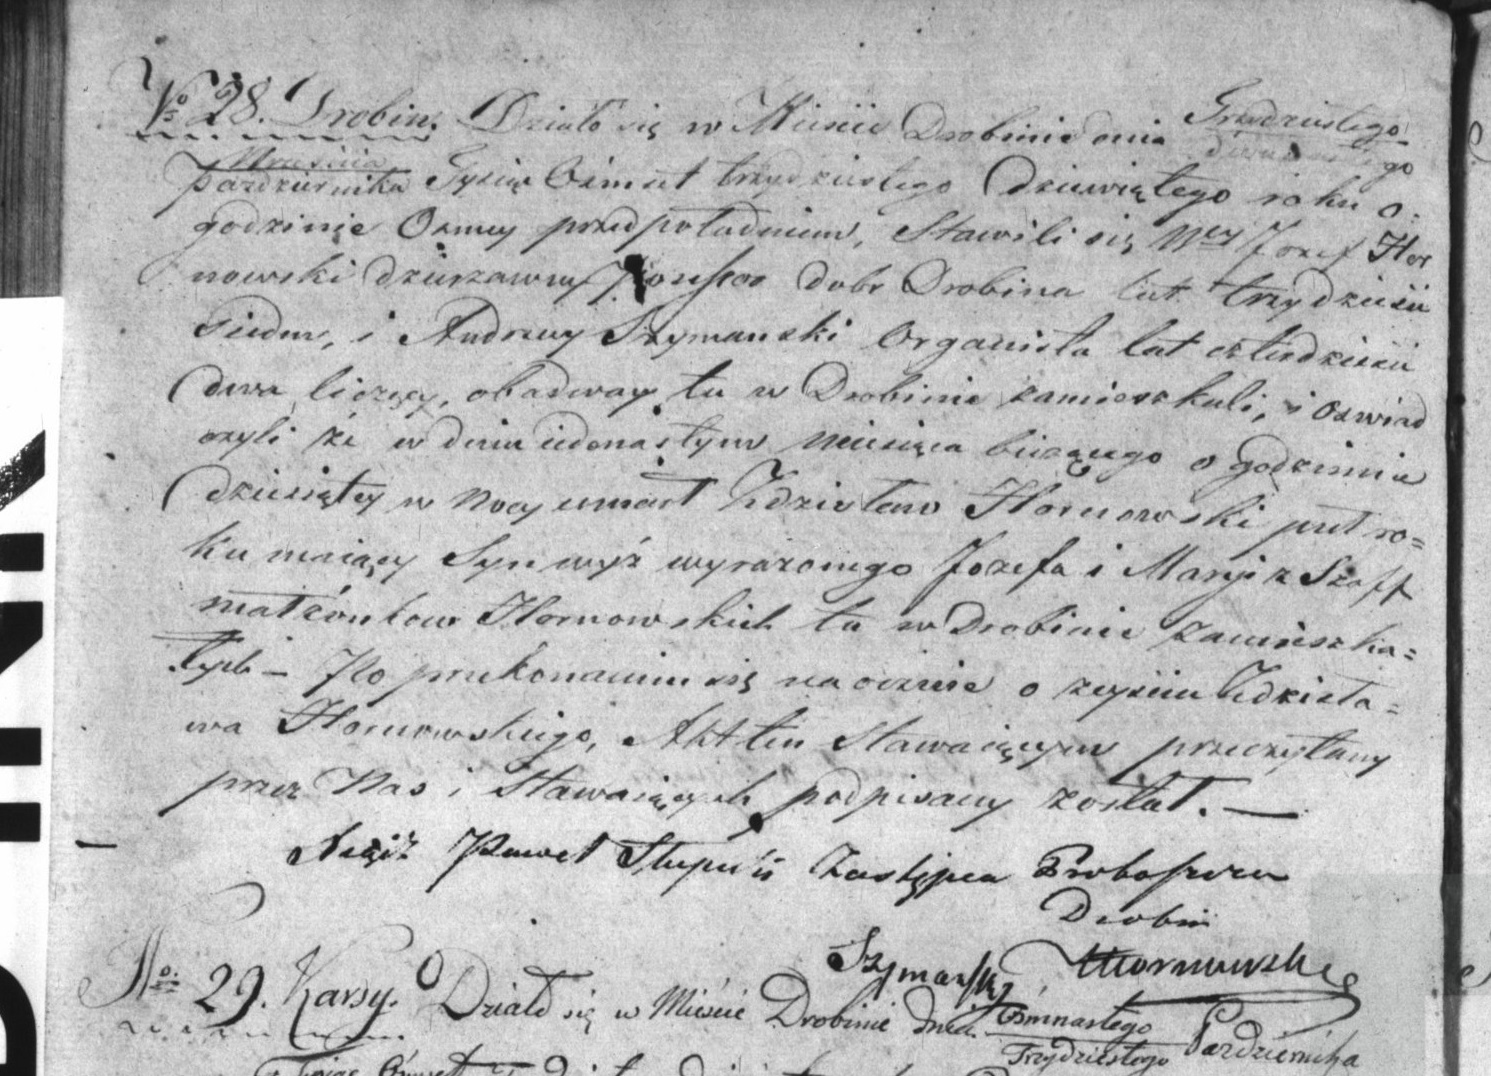 No 28. Drobin. Działo się w Mieście Drobinie dnia Trzydziestego
dwudziestego
Września
Pazdziernika Tysiąc Ośmset trzydziestego dziewiątego roku o
godzinie Osmey przedpołudniem, Stawili się Wny Jozef Hor
nowski dzierzawny Possessor dobr Drobina lat trzydzieści
siedm, i Andrzey Szymanski Organista lat czterdzieści
dwa liczący, obadway tu w Drobinie zamieszkali, i oswiad
czyli że w dniu iedenastym Miesiąca bieżącego o godzinie
dziesiątey w Nocy umarł Zdzisław Hornowski puł ro=
ku maiący Syn wyż wyrażonego Jozefa i Maryi z Szaff
małżonkow Hornowskich tu w Drobinie zamieszka=
łych – Po przekonaniu się naocznie o zeyściu Zdzisła=
wa Hornowskiego, Akt ten Stawaiącym przeczytany
przez Nas i Stawaiących podpisany został. —
Xiądz Paweł Stupski Zastępca Proboszcza
Drobin
Szymański Hornowski
No. 29. Karsy. Działo się w Mieście Drobinie dnia Ośmnastego Pazdziernika
Trzydziestego